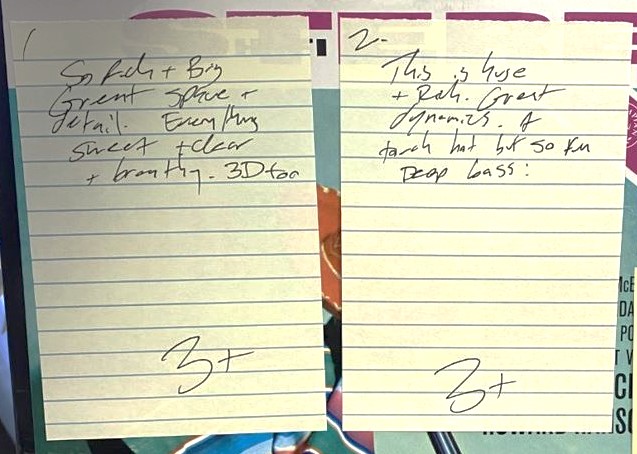 1
So Rich + Big
Great space +
detail. Everything
sweet + clear
+ breathy. 3D too
3+
2-
This is huge
+ Rich. Great
dynamics. A
touch hot but so fun
Deep bass!
3+
STE